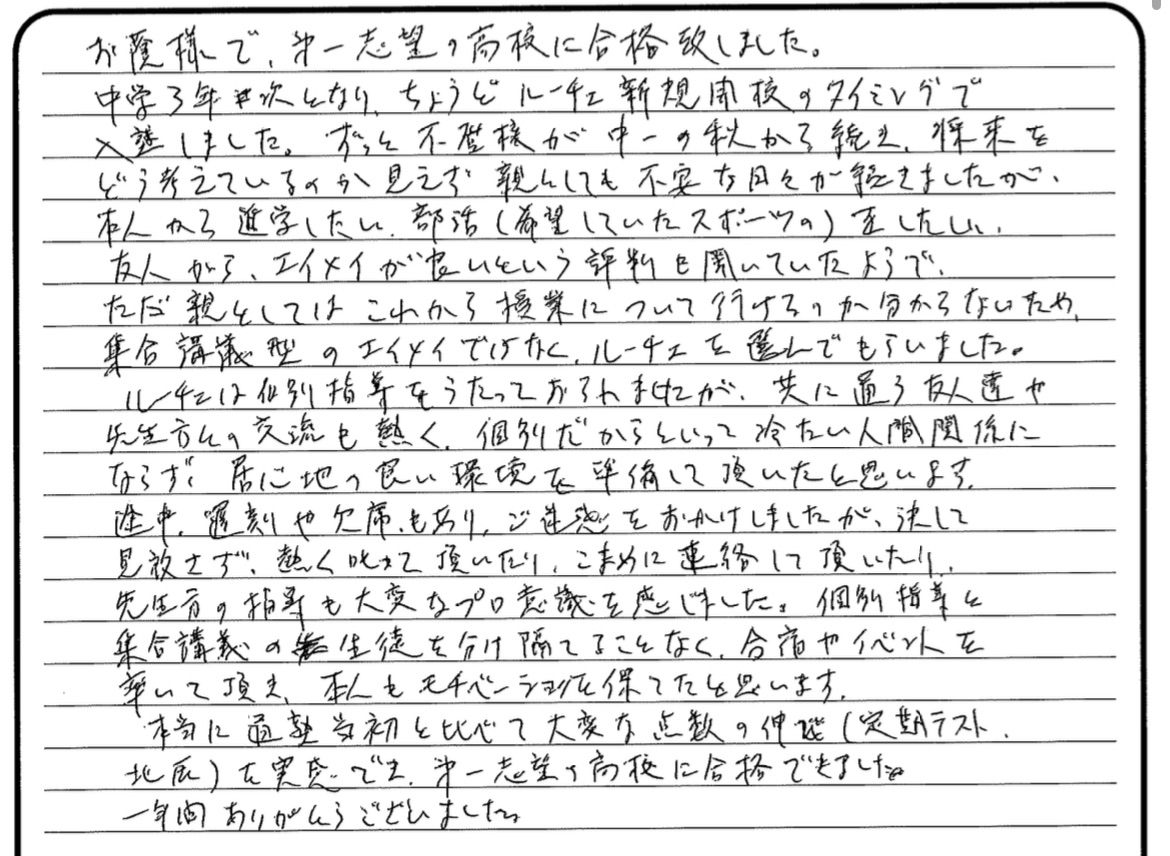 お蔭様で、第一志望の高校に合格致しました。
中学3年次となり、ちょうどルーチェ新規開校のタイミングで
入塾しました。ずっと不登校が中一の秋から続き、将来を
どう考えているのか見えず親としても不安な日々が続きましたが、
本人から進学したい、部活(希望していたスポーツの)をしたい、
友人から、エイメイが良いという評判も聞いていたようで、
ただ親としてはこれから授業について行けるのか分からないため、
集合講義型のエイメイではなく、ルーチェを選んでもらいました。
ルーチェは個別指導をうたっておられましたが、共に通う友人達や
先生方との交流も熱く、個別だからといって冷たい人間関係に
ならず、居心地の良い環境を準備して頂いたと思います。
途中、遅刻や欠席もあり、ご迷惑をおかけしましたが、決して
見放さず、熱く叱って頂いたり、こまめに連絡して頂いたり、
先生方の指導も大変なプロ意識を感じました。個別授業と
集合講義の生徒を分け隔てることなく、合宿やイベントを
率いて頂き、本人もモチベーションを保てたと思います。
本当に通塾当初と比べて大変な点数の伸び(定期テスト、
北辰)を実感でき、第一志望の高校に合格できました。
一年間ありがとうございました。